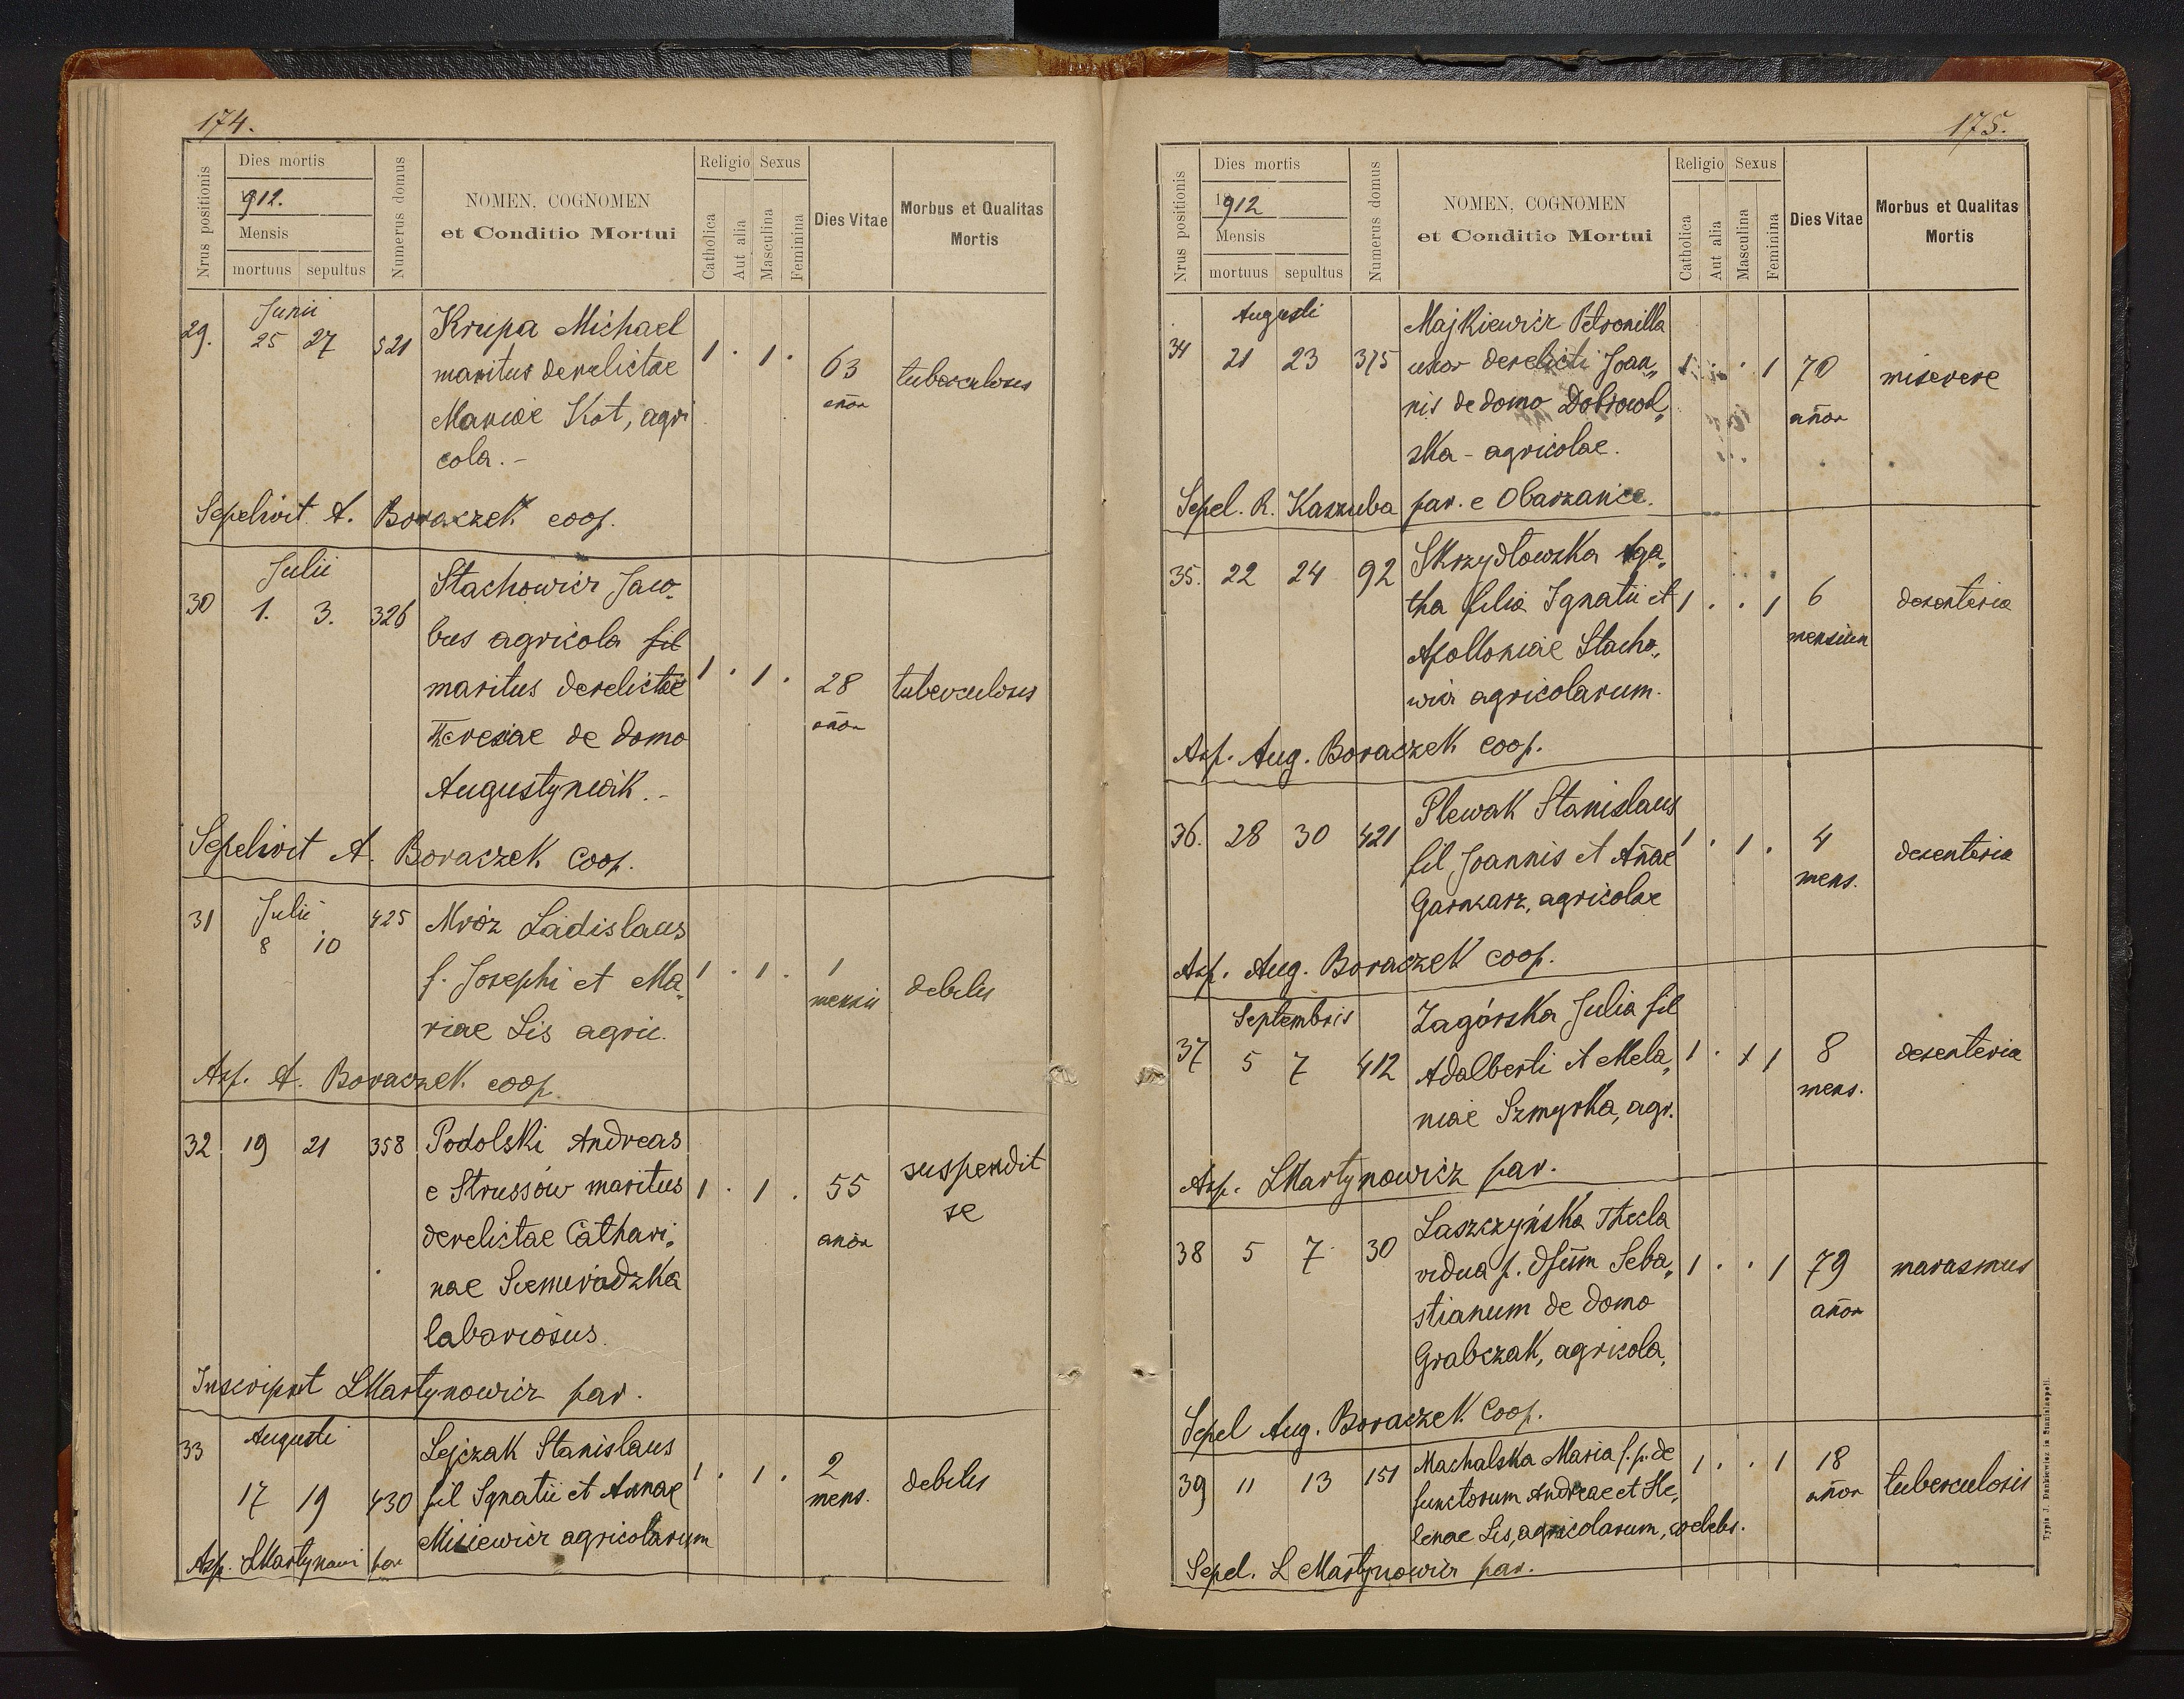 174.
Nrus positionis
Dies mortis
1912.
Mensis
mortuus sepultus
Numerus domus
NOMEN, COGNOMEN
et Conditio Mortui
Religio Sexus
Catholica
Aut alia
Masculina
Feminina
Dies Vitae
Morbus et Qualitas
Mortis
Junii
29. 25 27 521 Krupa Michael
maritus derelictae
Mariae Kot, agri
cola. -
1 . 1 . 63
añor
tuberculosis
Sepelivit A. Boraczek coop.
Julii
30 1. 3. 326 Stachowicz Jaco„
bus agricola fil
maritus derelictae
Theresiae de domo
Augustyniak. -
1 . 1 . 28
añor
tuberculosis
Sepelivit A. Boraczek coop.
Julii
31 8 10 425 Mróz Ladislaus
f. Josephi et Ma„
riae Lis agric.
1 . 1 . 1
mensis
debilis
Asp. A. Boraczek coop.
32 19 21 358 Podolski Andreas
e Strussów maritus
derelictae Cathari„
nae Siemieradzka
laboriosus.
1 . 1 . 55
anor
suspendit
se
Inscripsit LMartynowicz par.
Augusti
33 17 19 430 Lejczak Stanislaus
fil Ignatii et Annae
Misiewicz agricolarum
1 . 1 . 2
mens.
debilis
Asp. LMartynowi par
175.
Nrus positionis
Dies mortis
1912
Mensis
mortuus sepultus
Numerus domus
NOMEN, COGNOMEN
et Conditio Mortui
Religio Sexus
Catholica
Aut alia
Masculina
Feminina
Dies Vitae
Morbus et Qualitas
Mortis
Augusti
34 21 23 375 Majkiewicz Petronilla
uxor derelicti Joan„
nis de domo Dobrowol„
ska - agricolae.
1 . . 1 70
añor
miserere
Sepel. R. Kaszuba par. e Obarzance.
35. 22 24 92 Skrzydłowska Aga„
tha filia Ignatii et
Apolloniae Stacho„
wicz agricolarum.
1 . . 1 6
mensium
desenteria
Asp. Aug. Boraczek coop.
36. 28 30 421 Plewak Stanislaus
fil Joannis et Añae
Garncarz, agricolae
1 . 1 . 4
mens.
desenteria
Asp. Aug. Boraczek coop.
Septembris
37 5 7 412 Zagórska Julia fil
Adalberti et Mela„
niae Szmyrka, agr.
1 . x 1 8
mens.
desenteria
Asp. LMartynowicz par.
38 5 7 30 Laszczyńska Thecla
vidua p. dfum Seba„
stianum de domo
Grabczak, agricola,
1 . . 1 79
añor
marasmus
Sepel Aug. Boraczek coop.
39 11 13 151 Machalska Maria f. p. de
functorum Andreae et He„
lenae Lis, agricolarum, coelebs.
1 . . 1 18
añor
tuberculosis
Sepel. L Martynowicz par.
Typis J. Dankiewicz in Stanislaopoli.